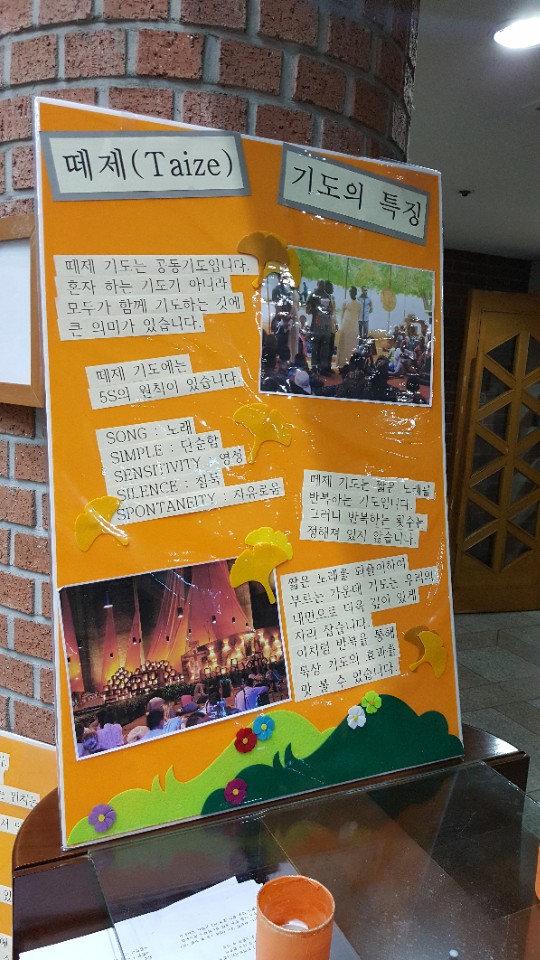 떼제(Taize)
기도의 특징
떼제 기도는 공동기도입니다.
혼자 하는 기도가 아니라
모두가 함께 기도하는 것에
큰 의미가 있습니다.
떼제 기도에는
5S의 원칙이 있습니다.
SONG : 노래
SIMPLE : 단순함
SENSITIVITY : 명정
SILENCE : 침묵
SPONTANEITY : 자유로움
떼제 기도는 짧은 노래를
반복하는 기도입니다.
그러나 반복하는 횟수는
정해져 있지 않습니다.
짧은 노래를 되풀이하여
부르는 가운데 기도는 우리의
내면으로 더욱 깊이 있게
자리 잡습니다.
이처럼 반복을 통해
묵상 기도의 효과를
맛 볼 수 있습니다.